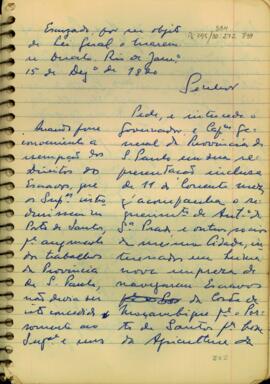 Escusado, por ser objeto
de Lei geral e marcar
o Direito. Rio de Janrº
15 de Dezº de 1820
Senhor
Pede, e intercede o
Governador e Capm Ge-
neral da Provincia de
S. Paulo em sua re-
presentação inclusa
de 11 do Corrente mez,
q' acompanha o re-
querimento de Antº da
Sª Prado, e outros socios
da mesma Cidade, in-
teressados em huma
nova empreza de
navegarem Escravos
da Costa de
Moçambique pª o Por-
to de Santos pª bene-
da Agricultura da
Quando fosse
conveniente a
isempção dos
direitos dos
Escravos, que
os Supes intro-
duzissem no
Porto de Santos,
pª augmento
dos trabalhos
da Provincia
de S. Paulo,
não devia ser
isto concedido
somente aos
Supes e sim